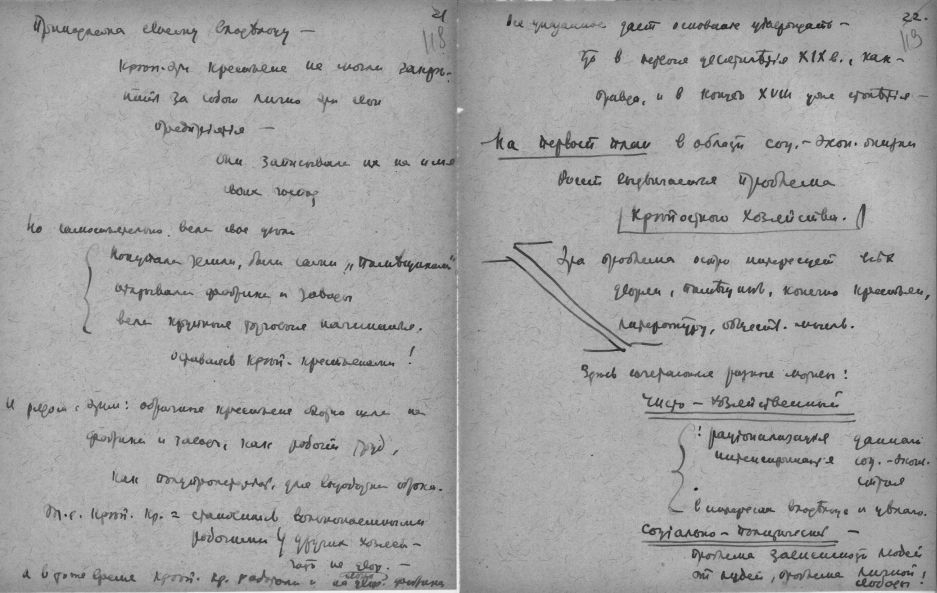 21
118
Принадлежа своему владельцу —
Креп. эти крестьяне не могли закре-
пить за собою лично эти свои
предприятия —
они записывали их на имя
своих господ
Но самостоятельно вели свое дело
Покупали земли, были сами „помещиками"
открывали фабрики и заводы
вели крупные торговые начинания.
оставаясь креп. крестьянами!
И рядом с этим: оброчные крестьяне шли на
фабрики и заводы, как рабочий труд,
как полупролетариат, для выработки оброка.
Т.е. креп. кр. = становились вольнонаемными
рабочими у других хозяев —
часто не двор. —
а в то же время креп. кр. работали и на двор. фабрика
22.
119
Все указанное дает основание утверждать —
что в первые десятилетия XIX в., как —
правда, и в конце XVIII уже столетия —
На первый план в области соц.-экон. жизни
выдвигается проблема
Крепостного хозяйства.
Эта проблема остро интересует всех
дворян, помещиков, конечно крестьян,
литературу, обществ. мысль.
Здесь сочетались разные мотивы:
Чисто — хозяйственный
! рационализация данной
интенсификация соц.-экон.
строя
в интересах владельца и целого.
Социально — политический —
проблема зависимости людей
от людей, проблема личной
свободы!